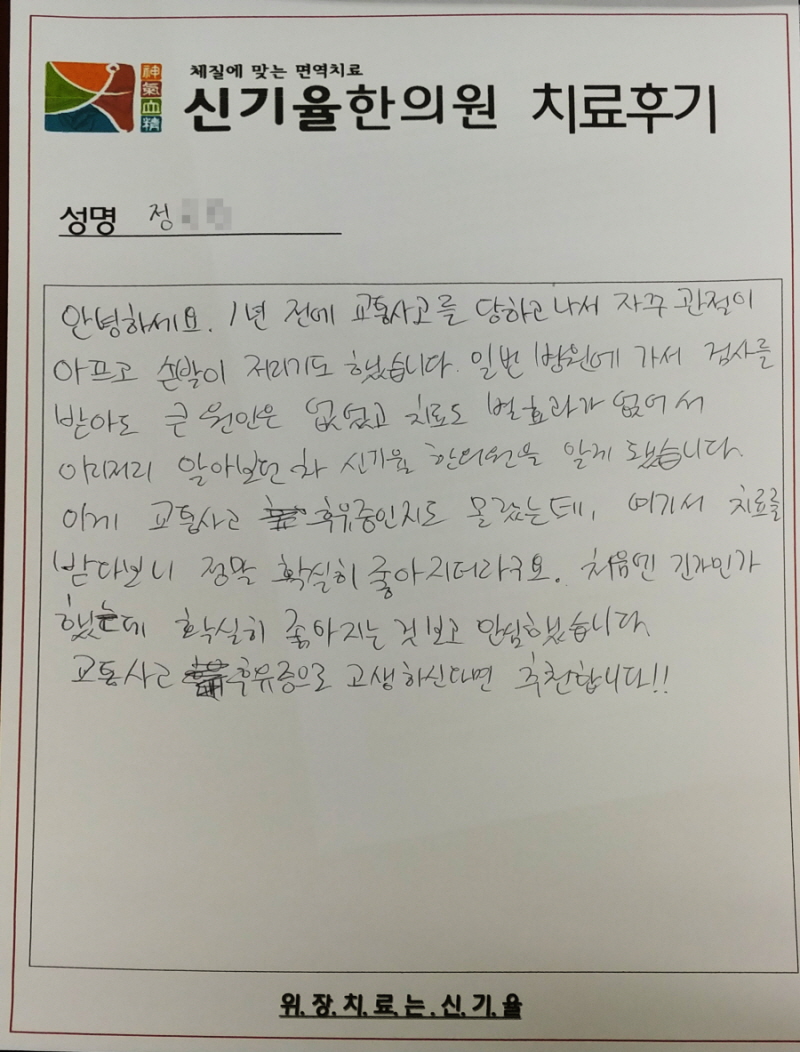 체질에 맞는 면역치료
神氣血精
신기율한의원 치료후기
성명 정
안녕하세요. 1년 전에 교통사고를 당하고 나서 자주 관절이
아프고 손발이 저리기도 했습니다. 일반 병원에 가서 검사를
받아도 큰 원인은 없었고 치료도 별효과가 없어서
이리저리 알아보던 차 신기율 한의원을 알게 됐습니다.
이게 교통사고 후유증인지도 몰랐는데, 여기서 치료를
받다보니 정말 확실히 좋아지더라구요. 처음엔 긴가민가
했는데 확실히 좋아지는 것 보고 안심했습니다
교통사고 후유증으로 고생하신다면 추천합니다!!
위.장.치.료.는.신.기.율